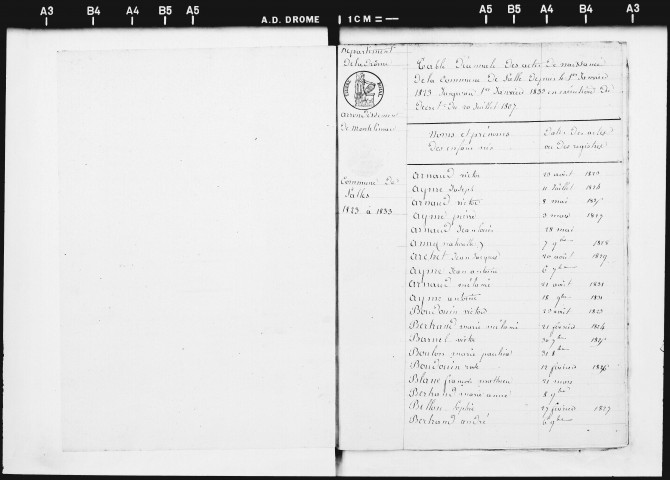 A3 B4 A4 B5 A5 A.D. DROME 1 CM = A5 B5 A4 B4 A3
Département
De la Drôme
arrondissement
De Montélimar
Commune de
Salles
1823 à 1833
Table Décennale Des actes De naissance
De la Commune De Salle Depuis le 1er Janvier
1823 Jusqu'au 1er Janvier 1833 en exécution Du
Décret De 20 Juillet 1807
Noms et prénoms Dates Des actes
Des enfans nés ou Des registres
Arnaud victor 20 août 1823
Ayme Joseph 11 Juillet 1824
Arnaud victor 8 mai
Aymé pierre 3 mars 1827
Arnaud Jean louis 28 mai
7 9bre 1828
Archet Jean Jacques 20 août 1829
Ayme Jean antoine 6 9bre
Arnaud mélanie 21 août 1831
Ayme antoine 18 9bre
Baudouin victor 20 août 1823
Bertrand marie mélanie 21 février 1824
victor
marie pauline
Baudouin rose 12 février 1826
Blanc françois mathieu 21 mars
Bertrand marie anne 8 9bre
Bellon Sophie 27 février 1827
Bertrand andré 6 9bre